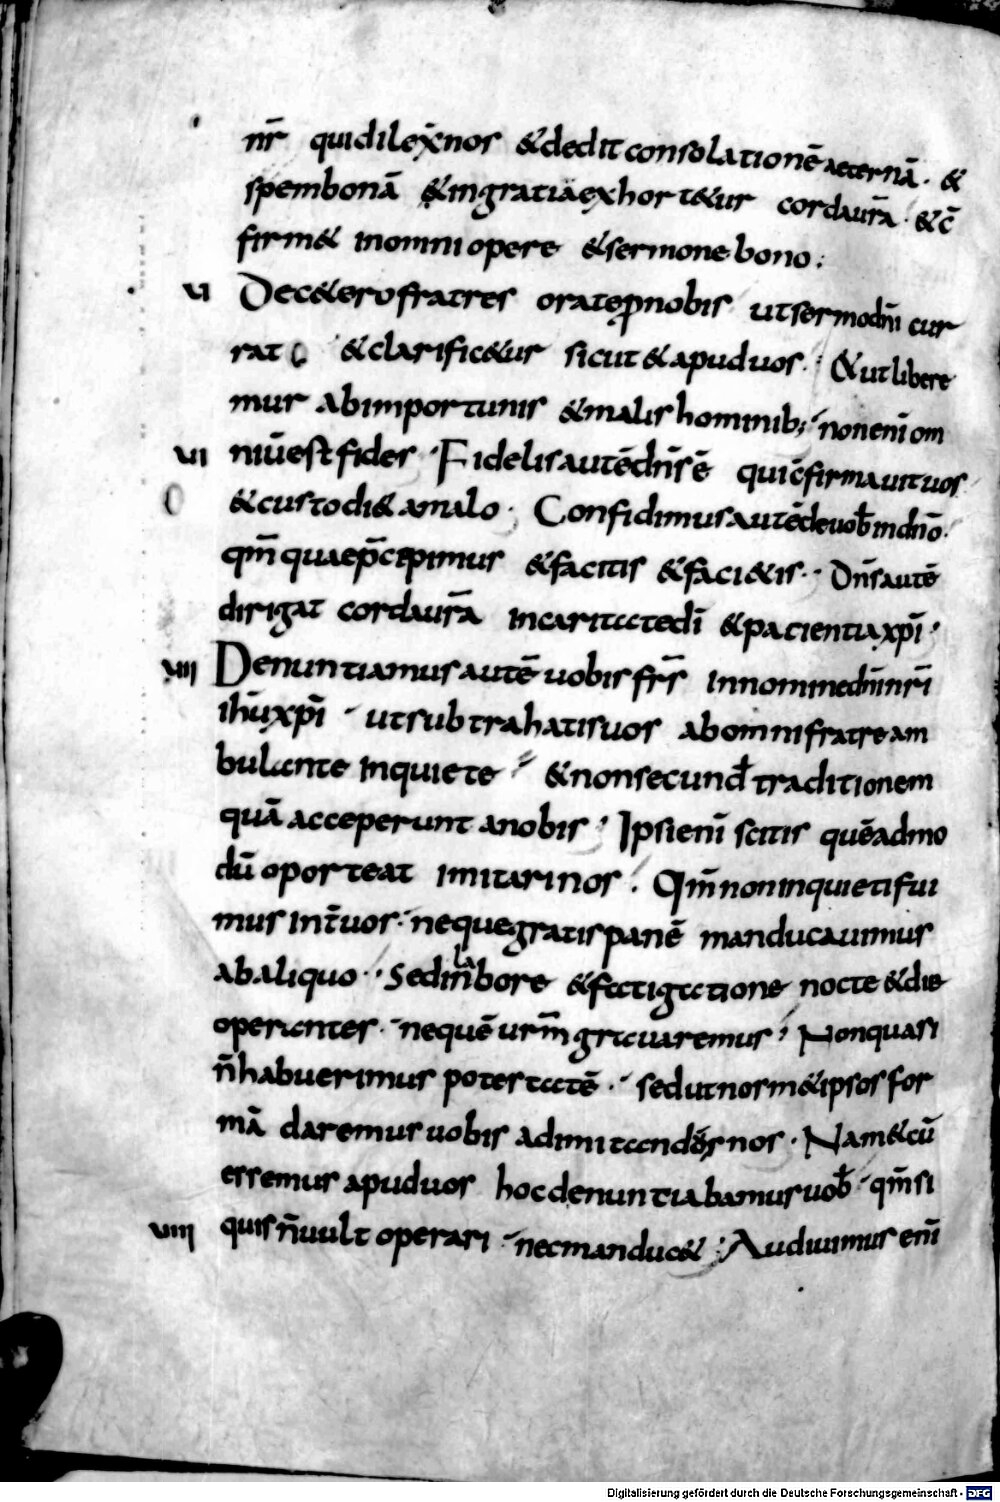 nr̄ qui dilex̄ nos & dedit consolationē aeternā · &
spem bonā & in gratia exhort&ur corda ur̄a · & c̄
firm& in omni opere & sermone bono :
VI De c&ero fratres orate ꝓ nobis ut sermo dn̄i cur
rat & clarific&ur sicut & apud uos · & ut libere
mur ab importunis & malis hominib; non eni̅ om
VI niū est fides · Fidelis autē dn̄s ē qui c̄firmauit uos
& custodi& a malo · Confidimus autē de uob̄ in dn̄o ·
qm̄ quae p̄cipimus & facitis & faci&is · Dn̄s autē
dirigat corda ur̄a in caritate dī & pacientia xp̄i ·
VIII Denuntiamus autē uobis fr̄s in nomine dn̄i nr̄i
ih̄u xp̄i · ut subtrahatis uos ab omni fratre am
bulante inquiete · & non secund̄ traditionem
quā acceperunt a nobis · Ipsi eni̅ scitis quēadmo
dū oporteat imitari nos · Qm̄ non inquieti fui
mus int̄ uos · neque gratis panē manducauimus
ab aliquo · Sed in labore & fatigatione nocte & die
operantes · ne quē ur̄m grauaremus · Non quasi
n̄ habuerimus potestatē · sed ut nosm&ipsos for
mā daremus uobis ad imitandos nos · Nam & cū
essemus apud uos hoc denuntiabamus uob̄ · qm̄ si
VIIII quis n̄ uult operari · nec manduc& · Audiuimus eni̅
Digitalisierung gefördert durch die Deutsche Forschungsgemeinschaft - DFG